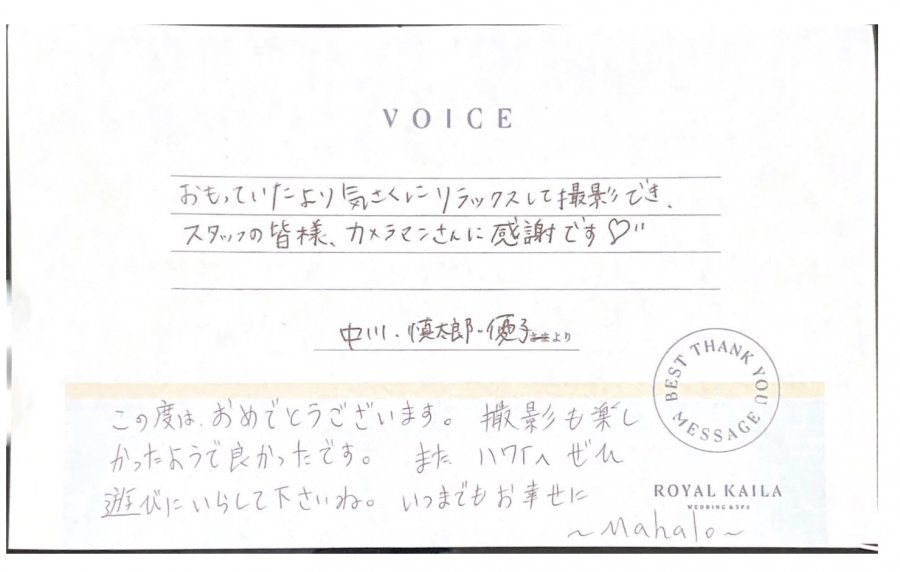 VOICE
おもっていたより気さくにリラックスして撮影でき、
スタッフの皆様、カメラマンさんに感謝です♡
中川・慎太郎・優子さまより
BEST THANK YOU MESSAGE
この度は、おめでとうございます。撮影も楽し
かったようで良かったです。また ハワイへ ぜひ
遊びにいらして下さいね。いつまでもお幸せに
ROYAL KAILA
WEDDING & SPA
~Mahalo~